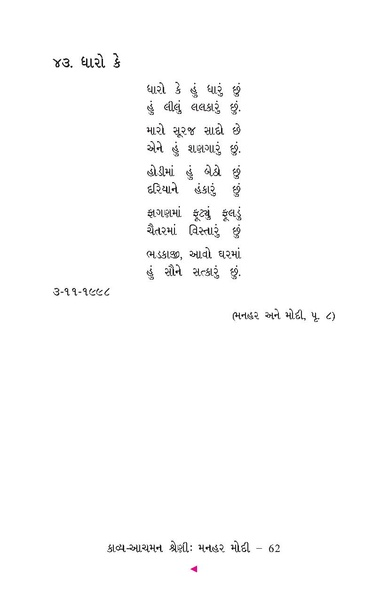 ૪૩. ધારો કે
ધારો કે હું ધારું છું
હું લીલું લલકારું છું.
મારો સૂરજ સાદો છે
એને હું શણગારું છું.
હોડીમાં હું બેઠો છું
દરિયાને હંકારું છું
ફાગણમાં ફૂટ્યું ફૂલડું
ચૈતરમાં વિસ્તારું છું
ભડકાજી, આવો ઘરમાં
હું સૌને સત્કારું છું.
૩-૧૧-૧૯૯૮
(મનહર અને મોદી, પૃ. ૮)
કાવ્ય-આચમન શ્રેણીઃ મનહર મોદી – 62